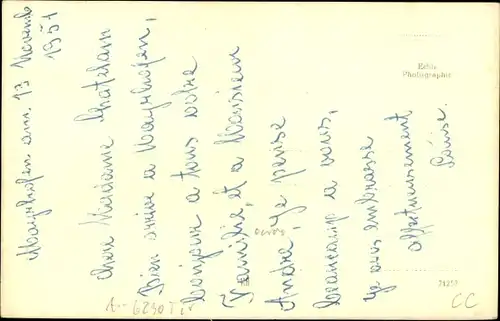 Mayrhofen am. 13 Novemb
1951
Chere Madame Chatelain
Bien arrivé a Mayrhofen,
bonjour a tous votre
Familie, et a Monsieur
Andre, Je pense
beaucoup a vous,
je vous embrasse
affectueusement
Louise.
Echte
Photographie
A-6290 Tir
71253
CC